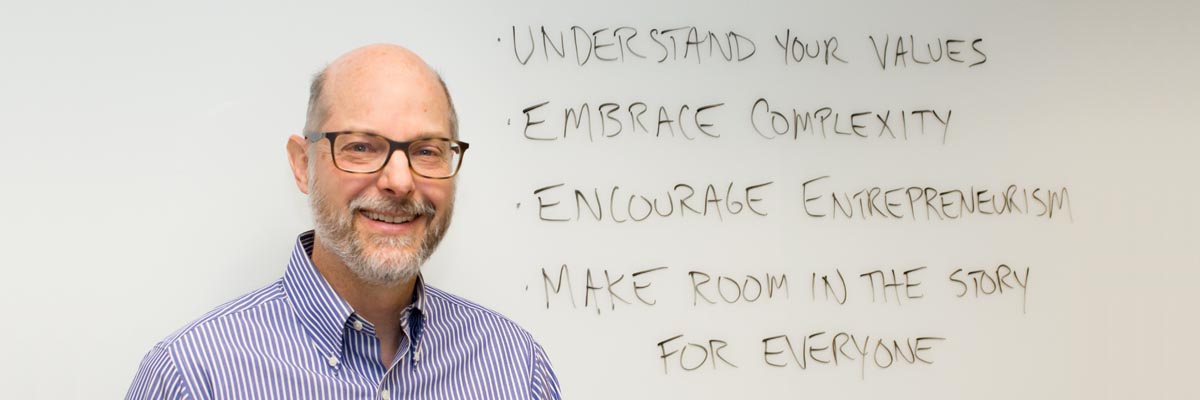 · UNDERSTAND YOUR VALUES
· EMBRACE COMPLEXITY
· ENCOURAGE ENTREPRENEURISM
· MAKE ROOM IN THE STORY
FOR EVERYONE